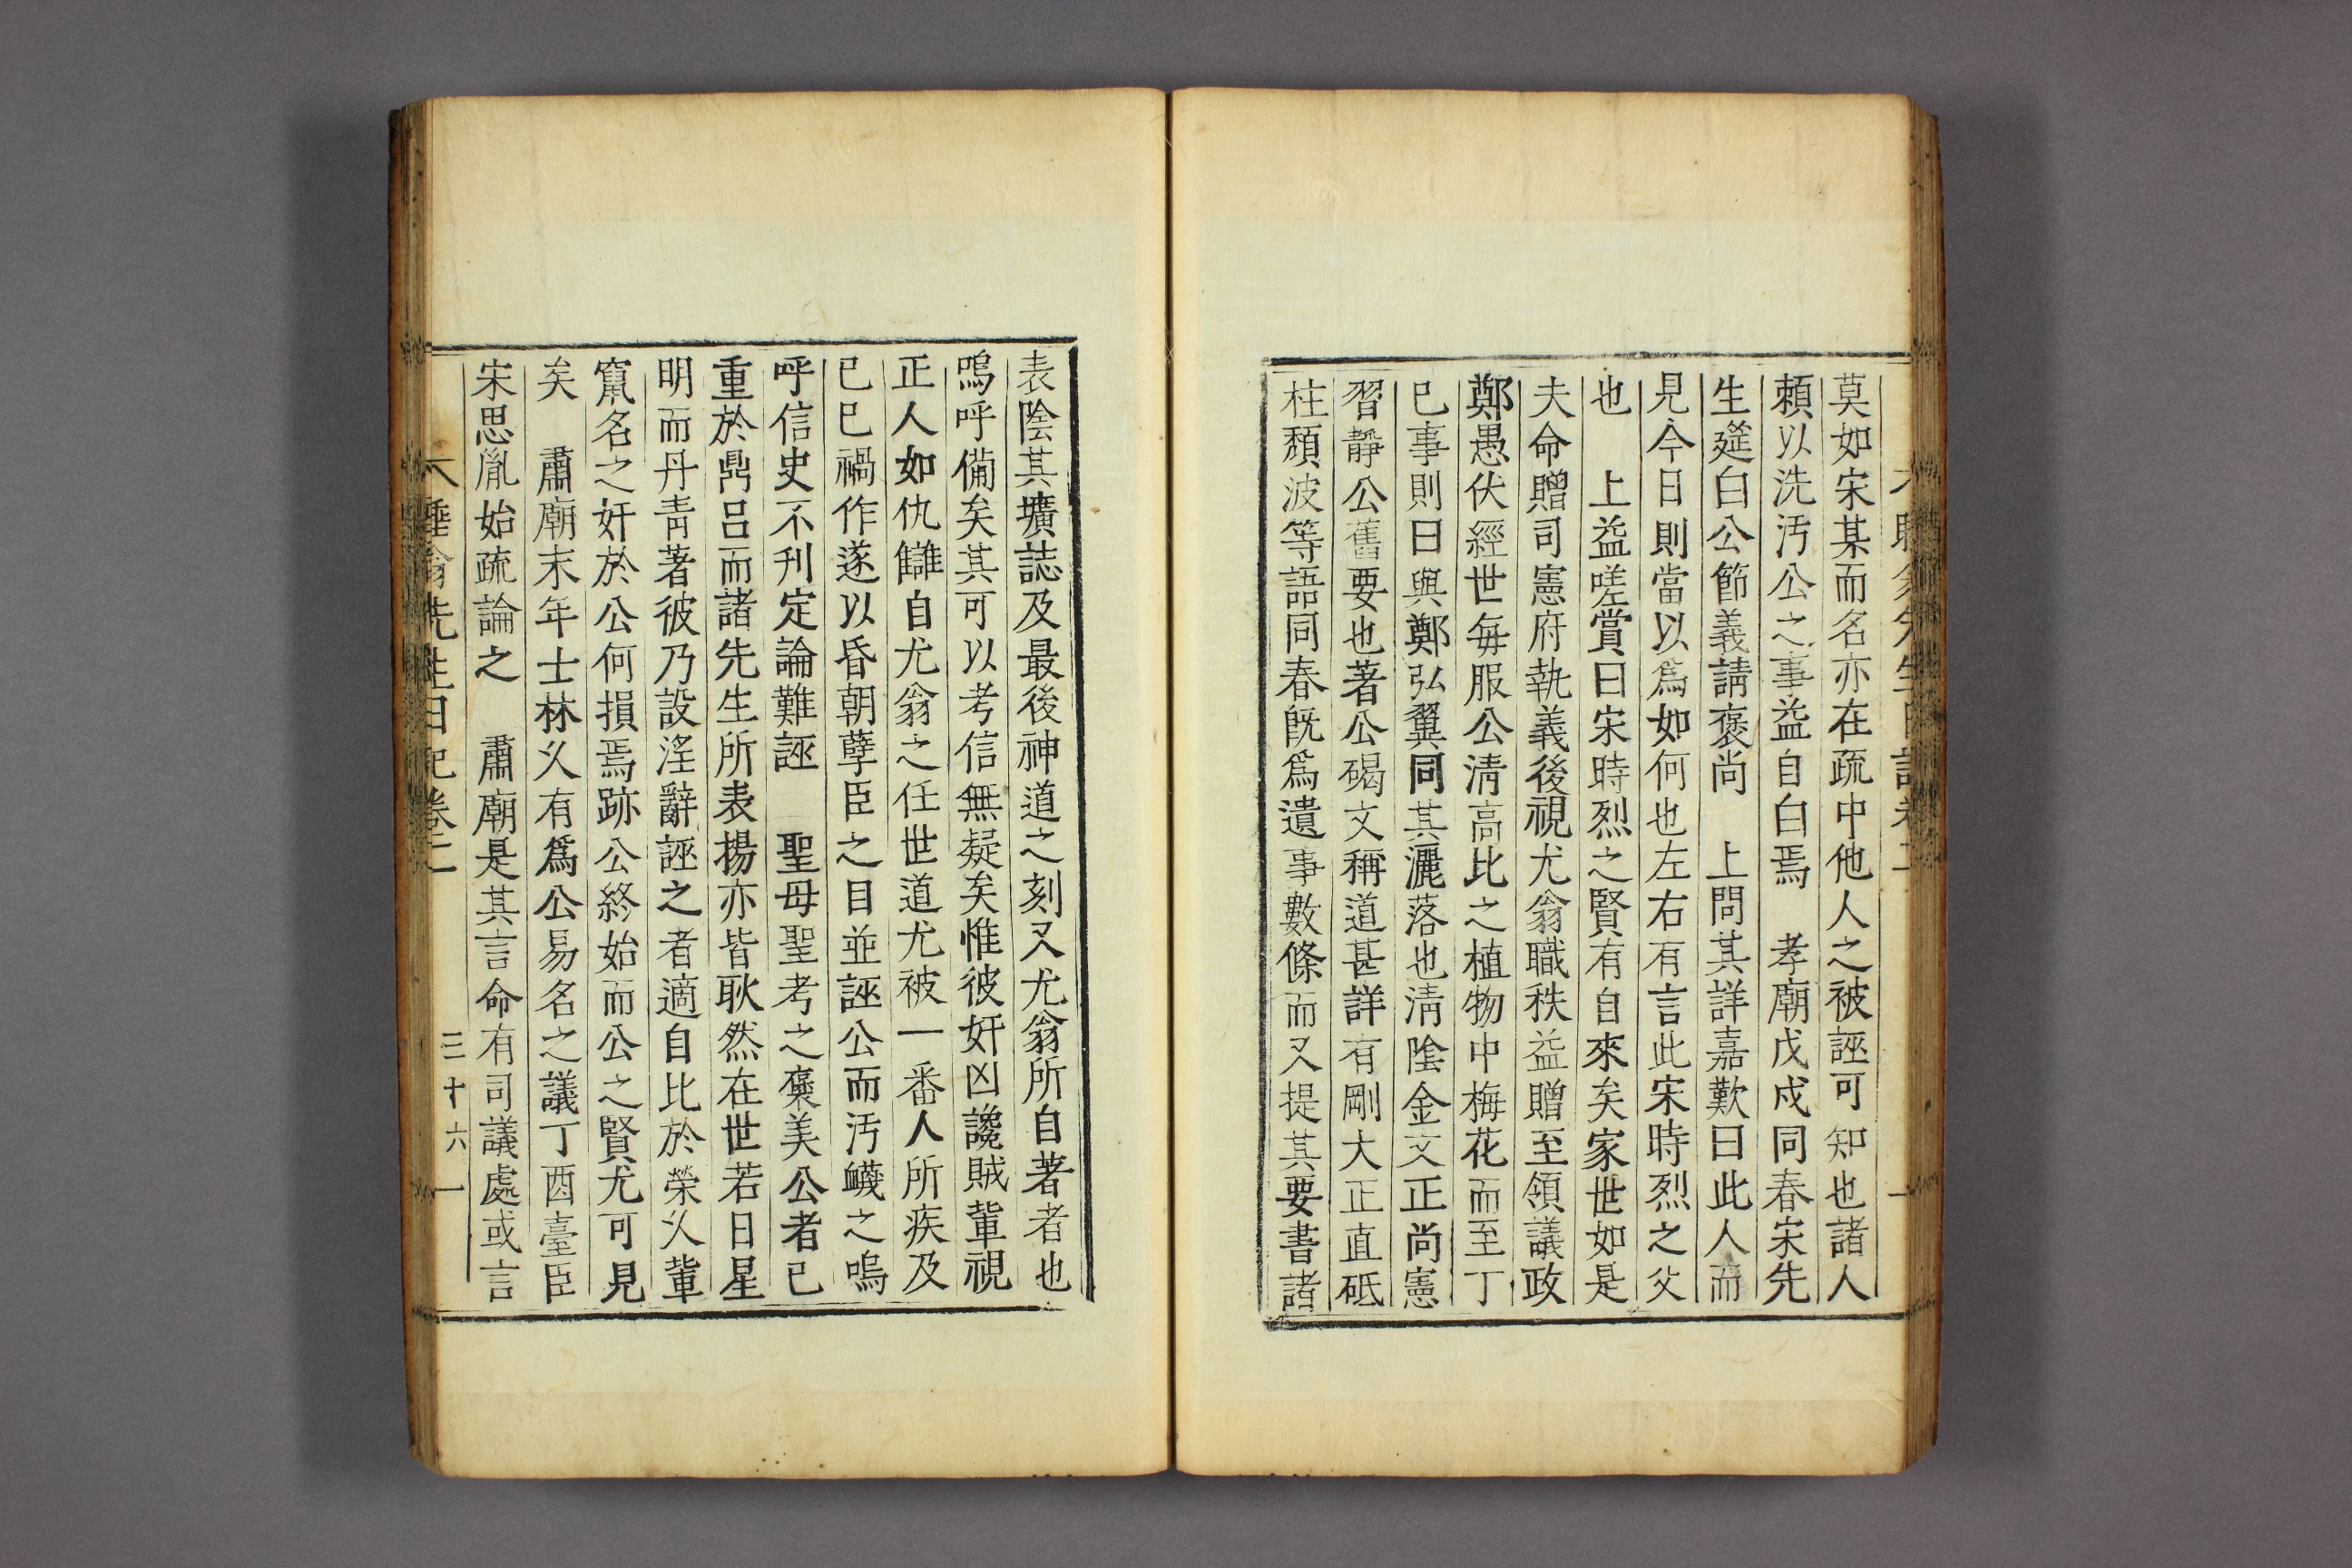 莫如宋某而名亦在疏中他人之被誣可知也諸人
賴以洗汚公之事益自白焉　孝廟戊戌同春宋先
生筵白公節義請褒尚　上問其詳嘉歎曰此人而
見今日則當以爲如何也左右有言此宋時烈之父
也　上益嗟賞曰宋時烈之賢有自來矣家世如是
夫命贈司憲府執義後視尤翁職秩益贈至領議政
鄭愚伏經世每服公淸高比之植物中梅花而至丁
巳事則曰與鄭弘翼同其灑落也淸陰金文正尚憲
習靜公舊要也著公碣文稱道甚詳有剛大正直砥
柱頹波等語同春旣爲遺事數條而又提其要書諸
表陰其壙誌及最後神道之刻又尤翁所自著者也
嗚呼備矣其可以考信無疑矣惟彼奸凶讒賊輩視
正人如仇讎自尤翁之任世道尤被一番人所疾及
己巳禍作遂以昏朝孽臣之目並誣公而汚衊之嗚
呼信史不刊定論難誣　聖母聖考之褒美公者已
重於鼎呂而諸先生所表揚亦皆耿然在世若日星
明而丹靑著彼乃設淫辭誣之者適自比於榮乂輩
竄名之奸於公何損焉跡公終始而公之賢尤可見
矣　肅廟末年士林乂有爲公易名之議丁酉臺臣
宋思胤始疏論之　肅廟是其言命有司議處或言
睡翁先生日記卷二　三十六